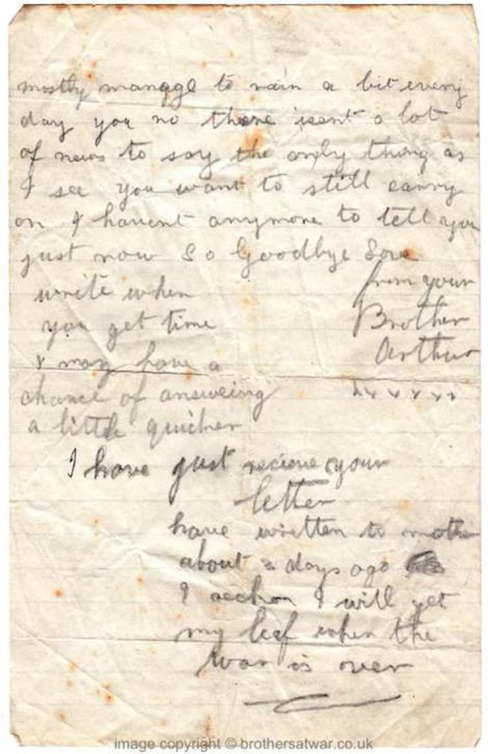 mostly manage to rain a bit every
day you no there isent a lot
of news to say the only thing as
I see you want to still carry
on I havent anymore to tell you
just now So Goodbye
from your
Brother
Arthur
write when
you get time
I may have a
chance of answeing
a little quicker
x x x x x x
I have just recieve your
letter
have written to mother
about 2 days ago
I reckon I will get
my leef when the
war is over
image copyright © brothersatwar.co.uk